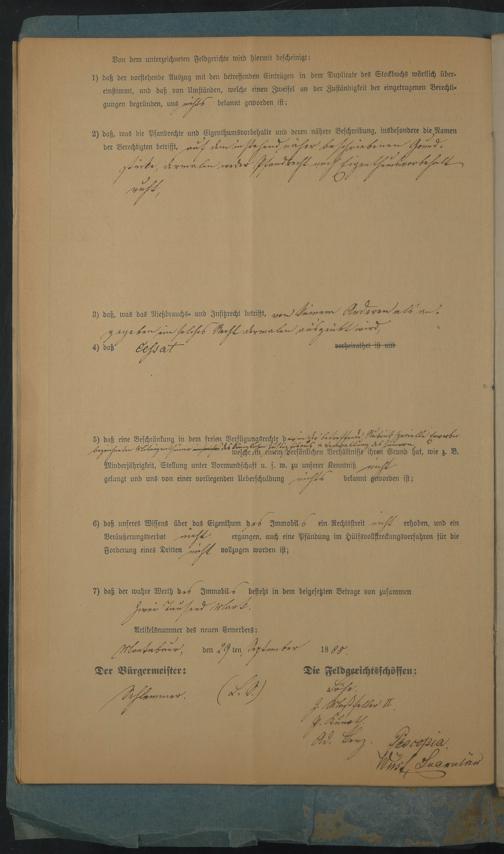 Von dem unterzeichneten Feldgerichte wird hiermit bescheinigt:
1) daß der vorstehende Auszug mit den betreffenden Einträgen in dem Duplicate des Stockbuchs wörtlich über-
einstimmt, und daß von Umständen, welche einen Zweifel an der Zuständigkeit der eingetragenen Berechti-
gungen begründen, uns nichts bekannt geworden ist;
2) daß, was die Pfandrechte und Eigenthumsvorbehalte und deren nähere Beschreibung, insbesondere die Namen
der Berechtigten betrifft, auf dem instehend näher beschriebenen Grund-
stücke, dermalen weder Pfandrecht noch Eigenthumsvorbehalt
ruht,
3) daß, was das Nießbrauchs- und Insitzrecht betrifft, von keinem Anderen als an-
gegeben ein solches Recht dermalen ausgeübt wird,
4) daß cessat verheirathet ist mit
5) daß eine Beschränkung in dem freien Verfügungsrechte
welche in einem persönlichen Verhältnisse ihren Grund hat, wie z. B.
Minderjährigkeit, Stellung unter Vormundschaft u. s. w. zu unserer Kenntniß nicht
gelangt und uns von einer vorliegenden Ueberschuldung nichts bekannt geworden ist;
6) daß unseres Wissens über das Eigenthum des Immobils ein Rechtsstreit nicht erhoben, und ein
Veräußerungsverbot nicht ergangen, auch eine Pfändung im Hülfsvollstreckungsverfahren für die
Forderung eines Dritten nicht vollzogen worden ist;
7) daß der wahre Werth des Immobils besteht in dem beigesetzten Betrage von zusammen
Zwei Tausend Mark.
Artikelnummer des neuen Erwerbers:
Montabaur, den 29ten September 1885.
Der Bürgermeister: Die Feldgerichtsschöffen:
Schlemmer. (L. S.)